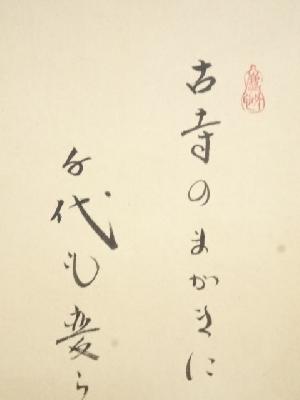 古寺のまがきに
千代も変ら